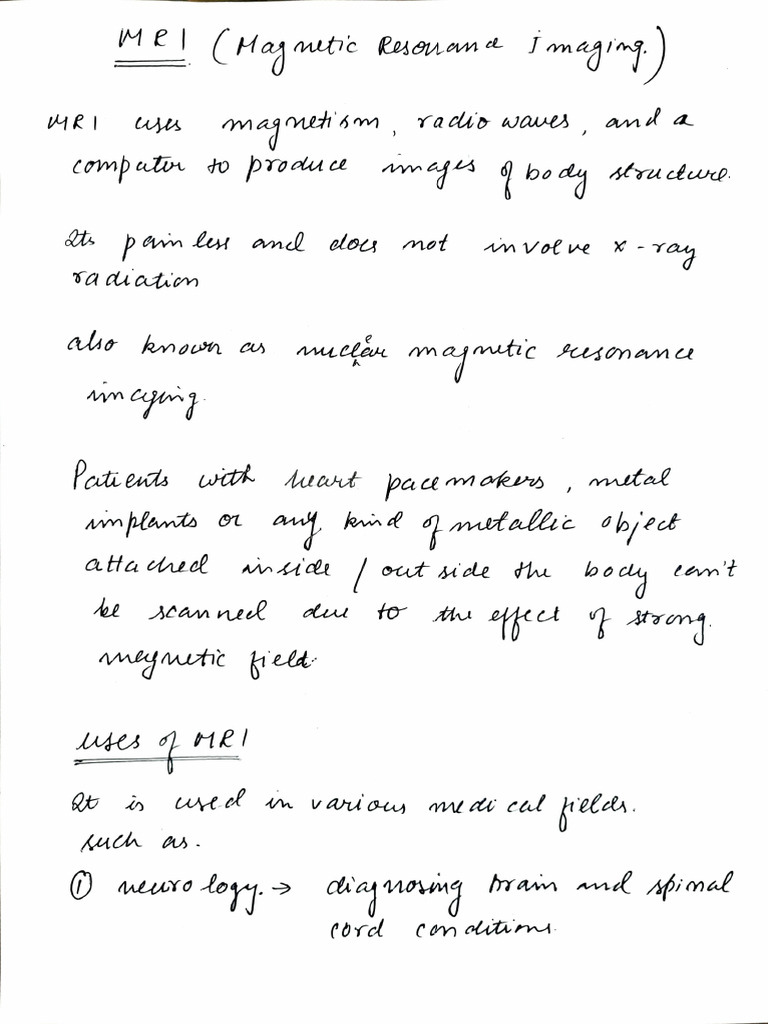 MRI (Magnetic Resonance Imaging.)
MRI uses magnetism, radio waves, and a
computer to produce images of body structure.
Its painless and does not involve x-ray
radiation
also known as nuclear magnetic resonance
imaging.
Patients with heart pacemakers, metal
implants or any kind of metallic object
attached inside / outside the body can't
be scanned due to the effect of strong.
magnetic field.
uses of MRI
It is used in various medical fields.
such as.
① neurology. → diagnosing brain and spinal
cord conditions.